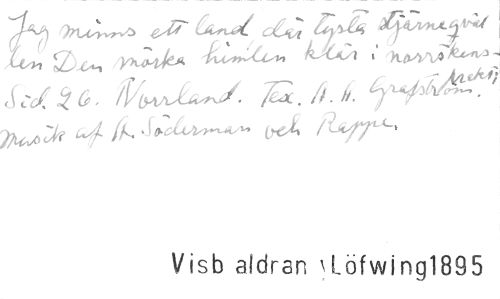 Jag minns ett land där tysta stjärneqväl
len Den mörka himlen klär i norrskens-
Sid. 26. Norrland. Tex. A. A. Grafström.
musik af A. Söderman och Rappe.
Visb aldran Löfwing1895